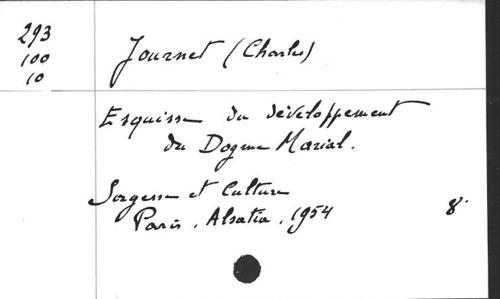 293
100
10
Journet (Charles)
Esquisse du développement
du Dogme Marial.
Sagesse et Culture
Paris. Alsatia. 1954 8°